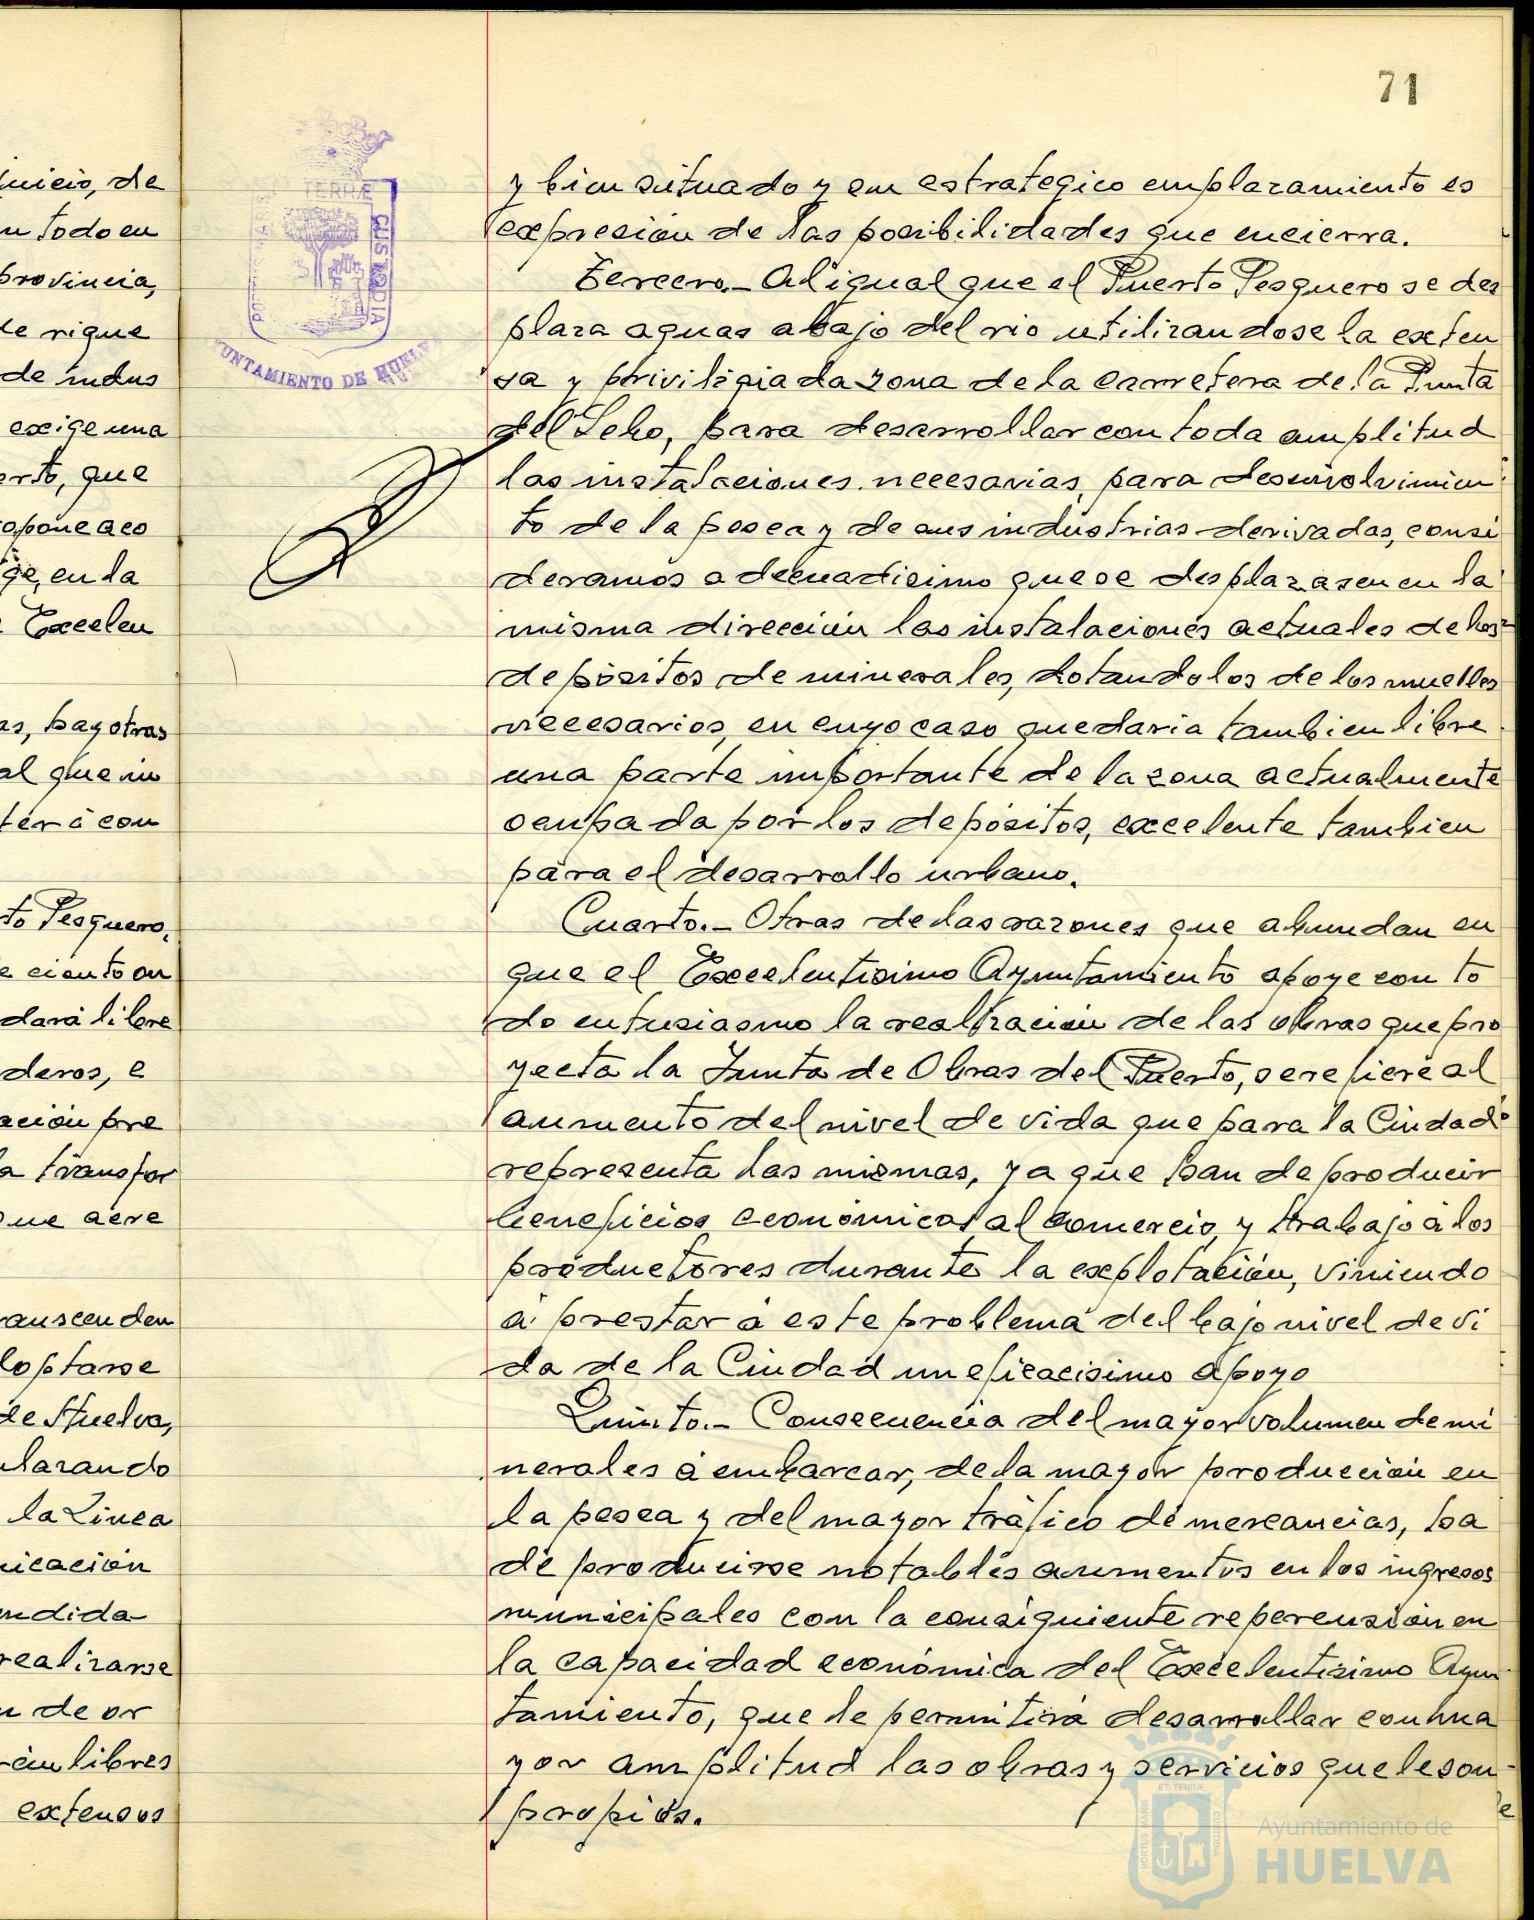 71
juicio, de
n todo en
provincia,
de rique
de indus
exige una
erto, que
opone aco
ge, en la
Excelen
as, hay otras
al que in
terá con
to Pesquero,
e ciento on
dará libre
deros, e
ación pre
a transfor
que acre
anscenden
doptarse
de Huelva,
ularando
la Linea
nicación
ndida
realizarse
n de or
rán libres
extensos
PORTUS MARIS ET TERRÆ CUSTODIA
AYUNTAMIENTO DE HUELVA
y bien situado y en estrategico emplazamiento es
expresión de las posibilidades que encierra.
Tercero.- Al igual que el Puerto Pesquero se des
plaza aguas abajo del rio utilizandose la exten
sa y priviligiada zona de la carretera de la Punta
del Sebo, para desarrollar con toda amplitud
las instalaciones necesarias, para desenvolvimien
to de la pesca y de sus industrias derivadas, consi
deramos adecuadisimo que se desplazasen en la
misma dirección las instalaciones actuales de los
depósitos de minerales, dotandolos de los muelles
necesarios, en cuyo caso quedaria tambien libre
una parte importante de la zona actualmente
ocupada por los depósitos, excelente tambien
para el desarrollo urbano.
Cuarto.- Otras de las razones que abundan en
que el Excelentisimo Ayuntamiento apoye con to
do entusiasmo la realización de las obras que pro
yecta la Junta de Obras del Puerto, se refiere al
aumento del nivel de vida que para la Ciudad
representa las mismas, ya que han de producir
beneficios económicos al comercio, y trabajo á los
productores durante la explotación, viniendo
á prestar á este problema del bajo nivel de vi
da de la Ciudad un eficacisimo apoyo
Quinto.- Consecuencia del mayor volumen de mi
nerales á embarcar, de la mayor producción en
la pesca y del mayor tráfico de mercancias, ha
de producirse notables aumentos en los ingresos
municipales con la consiguiente repercusión en
la capacidad económica del Excelentisimo Ayun
tamiento, que le permitirá desarrollar con ma
yor amplitud las obras y servicios que le son
propios.
Ayuntamiento de
HUELVA